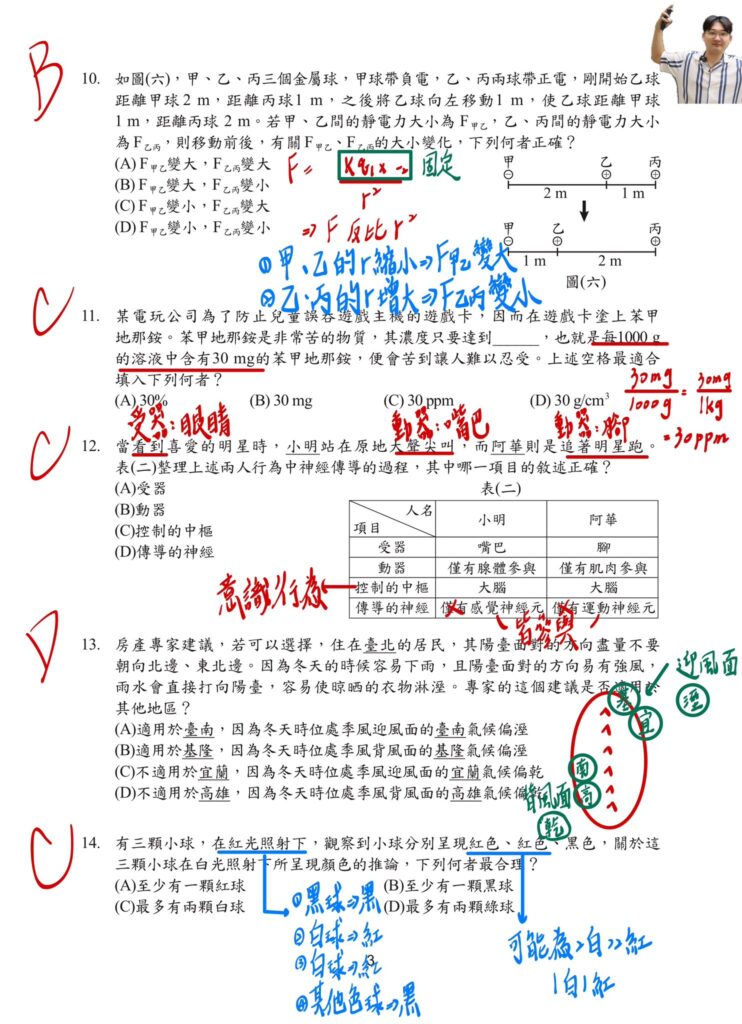 B
10. 如圖(六),甲、乙、丙三個金屬球,甲球帶負電,乙、丙兩球帶正電,剛開始乙球
距離甲球2 m,距離丙球1 m,之後將乙球向左移動1 m,使乙球距離甲球
1 m,距離丙球 2 m。若甲、乙間的靜電力大小為F甲乙,乙、丙間的靜電力大小
為F乙丙,則移動前後,有關F甲乙、F乙丙的大小變化,下列何者正確?
(A) F甲乙變大,F乙丙變大
(B) F甲乙變大,F乙丙變小
(C) F甲乙變小,F乙丙變大
(D) F甲乙變小,F乙丙變小
F = 固定
r²
⇒ F 反比 r²
甲 乙 丙
2 m 1 m
甲 乙 丙
1 m 2 m
圖(六)
① 甲、乙的r縮小⇒F甲乙變大
② 乙、丙的r增大⇒F乙丙變小
C
11. 某電玩公司為了防止兒童誤吞遊戲主機的遊戲卡,因而在遊戲卡塗上苯甲
地那銨。苯甲地那銨是非常苦的物質,其濃度只要達到______,也就是每1000 g
的溶液中含有30 mg的苯甲地那銨,便會苦到讓人難以忍受。上述空格最適合
填入下列何者?
(A) 30% (B) 30 mg (C) 30 ppm (D) 30 g/cm³
30mg/1000g = 30mg/1kg
= 30ppm
受器:眼睛 動器:嘴巴 動器:腳
C
12. 當看到喜愛的明星時,小明站在原地大聲尖叫,而阿華則是追著明星跑。
表(二)整理上述兩人行為中神經傳導的過程,其中哪一項目的敘述正確?
(A)受器
(B)動器
(C)控制的中樞
(D)傳導的神經
表(二)
項目 人名 小明 阿華
受器 嘴巴 腳
動器 僅有腺體參與 僅有肌肉參與
控制的中樞 大腦 大腦
傳導的神經 僅有感覺神經元 僅有運動神經元
意識行為
皆參與
D
13. 房產專家建議,若可以選擇,住在臺北的居民,其陽臺面對的方向盡量不要
朝向北邊、東北邊。因為冬天的時候容易下雨,且陽臺面對的方向易有強風,
雨水會直接打向陽臺,容易使晾晒的衣物淋溼。專家的這個建議是否適用於
其他地區?
(A)適用於臺南,因為冬天時位處季風迎風面的臺南氣候偏溼
(B)適用於基隆,因為冬天時位處季風背風面的基隆氣候偏溼
(C)不適用於宜蘭,因為冬天時位處季風迎風面的宜蘭氣候偏乾
(D)不適用於高雄,因為冬天時位處季風背風面的高雄氣候偏乾
迎風面
溼
基
宜
南
高
背風面
乾
C
14. 有三顆小球,在紅光照射下,觀察到小球分別呈現紅色、紅色、黑色,關於這
三顆小球在白光照射下所呈現顏色的推論,下列何者最合理?
(A)至少有一顆紅球 (B)至少有一顆黑球
(C)最多有兩顆白球 (D)最多有兩顆綠球
① 黑球⇒黑
② 白球⇒紅
③ 白球⇒紅
④ 其他色球⇒黑
可能為2白、2紅
1白1紅
3